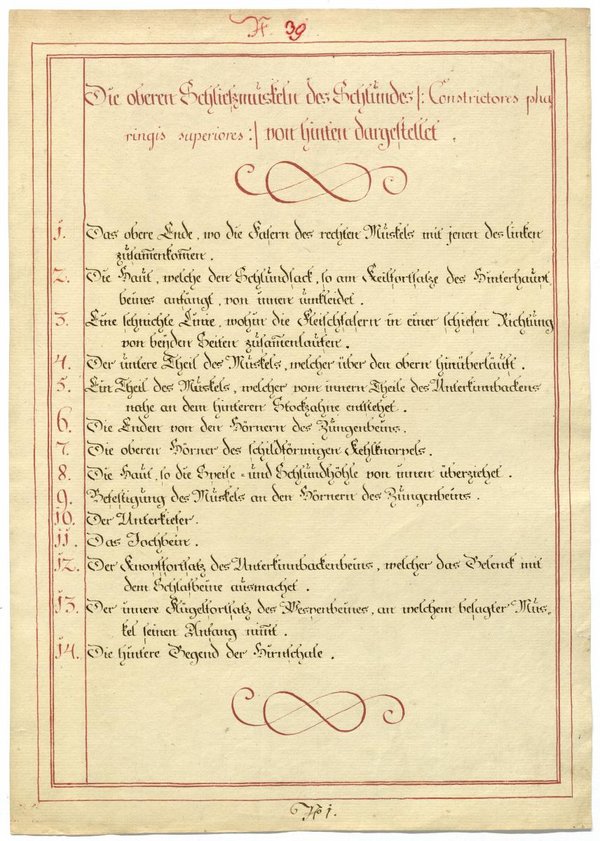 N 39
Die oberen Schließmuskeln des Schlundes /: Constrictores pha
ringis superiores :/ von hinten dargestellet .
1. Das obere Ende, wo die Fasern des rechten Muskels mit jenen des linken
zusam̅enkom̅en .
2. Die Haut, welche den Schlundsack, so am Keilfortsatze des Hinterhaupt
beines anfangt, von innen umkleidet .
3. Eine sehnichte Linie, wohin die Fleischfasern in einer schiefen Richtung
von beyden Seiten zusamenlaufen .
4. Der untere Theil des Muskels, welcher über den obern hinüberlauft .
5. Ein Theil des Muskels, welcher vom innern Theile des Unterkinnbackens
nahe an dem hinteren Stockzahne entstehet .
6. Die Enden von den Hörnern des Zungenbeins .
7. Die oberen Hörner des schildförmigen Kehlknorpels .
8. Die Haut, so die Speise- und Schlundhöhle von innen überziehet .
9. Befestigung des Muskels an den Hörnern des Zungenbeins .
10. Der Unterkiefer .
11. Das Jochbein .
12. Der Knopffortsatz des Unterkinnbackenbeins, welcher das Gelenck mit
dem Schlafbeine ausmachet .
13. Der innere Flügelfortsatz des Wespenbeines, an welchem besagter Mus-
kel seinen Anfang nim̅t .
14. Die hintere Gegend der Hirnschale .